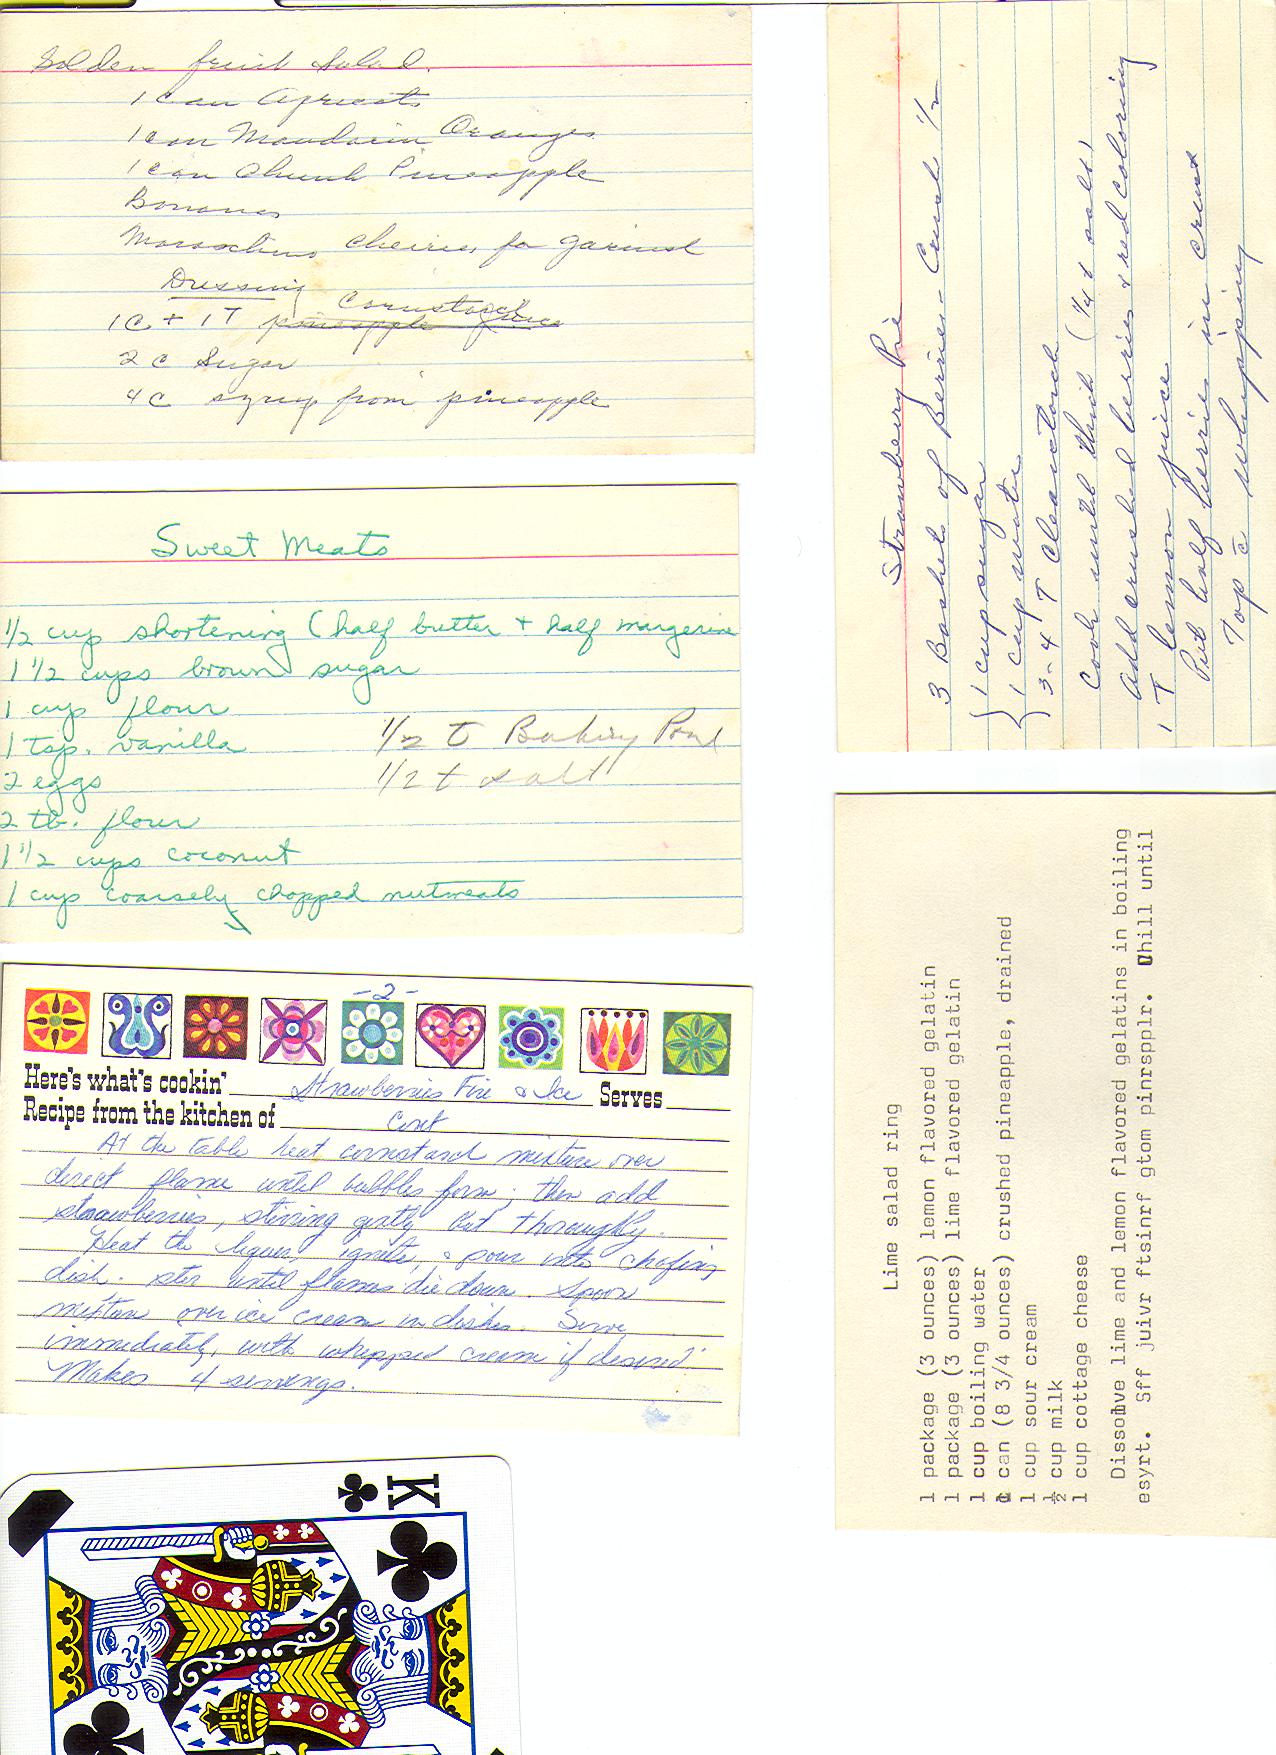 Golden fruit Salad.
1 can Apricots
1 can Mandarin Oranges
1 can chunk Pineapple
Bananas
Maraschino cherries for garinsh
Dressing
Cornstarch
1 C + 1 T pineapple juice
2 c Sugar
4 C syrup from pineapple
Sweet Meats
1/2 cup shortening (half butter + half margerine
1 1/2 cups brown sugar
1 cup flour
1 tsp. vanilla
1/2 t Baking Powd
2 eggs
1/2 t salt
2 tb. flour
1 1/2 cups coconut
1 cup coarsely chopped nutmeats
-2-
Here's what's cookin' Strawberries Fire & Ice Serves
Recipe from the kitchen of Cont
At the table heat cornstarch mixture over
direct flame until bubbles form; then add
strawberries, stirring gently but thoroughly.
Heat the liquer, ignite, & pour into chafing
dish. stir until flames die down. Spoon
mixture over ice cream in dishes. Serve
immediately, with whipped cream if desired.
Makes 4 servings.
K
Strawberry Pie
3 Baskets of Berries - Crush 1/2
1 cup sugar
1 cup water
3-4 T Cleartorch
Cook until thick (1/4 t salt)
Add crushed berries & red coloring
1 T lemon juice
Put half berries in crust
Top c̄ whipping
Lime salad ring
1 package (3 ounces) lemon flavored gelatin
1 package (3 ounces) lime flavored gelatin
1 cup boiling water
1 can (8 3/4 ounces) crushed pineapple, drained
1 cup sour cream
½ cup milk
1 cup cottage cheese
Dissolve lime and lemon flavored gelatins in boiling
esyrt. Sff juivr ftsinrf gtom pinrspplr. Chill until